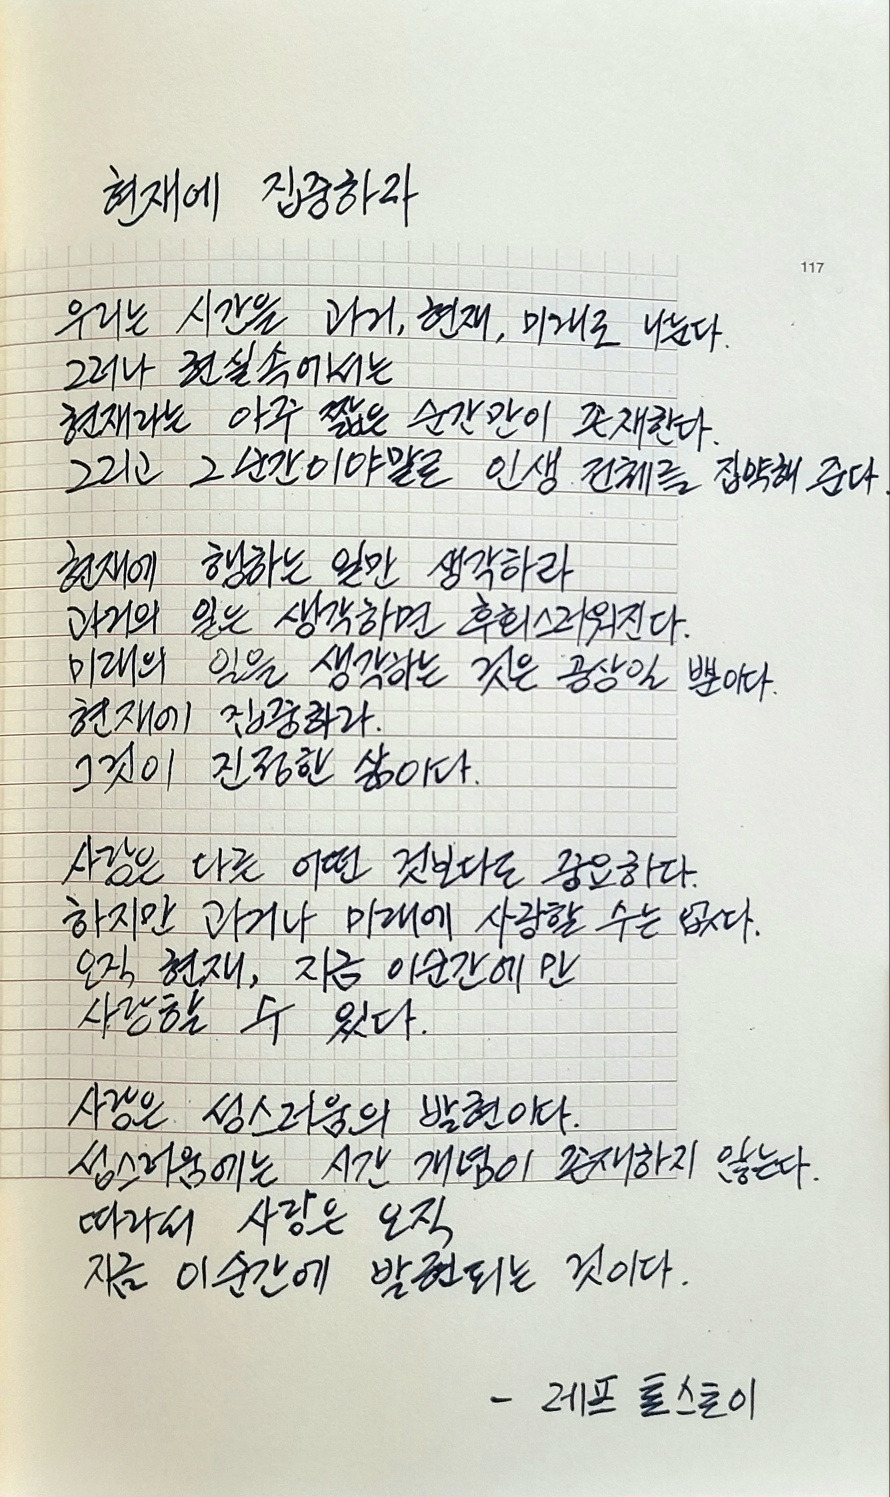 현재에 집중하라
117
우리는 시간을 과거, 현재, 미래로 나눈다.
그러나 현실속에서는
현재라는 아주 짧은 순간만이 존재한다.
그리고 그 순간이야말로 인생 전체를 집약해 준다.
현재에 행하는 일만 생각하라
과거의 일은 생각하면 후회스러워진다.
미래의 일을 생각하는 것은 공상일 뿐이다.
현재에 집중하라.
그것이 진정한 삶이다.
사랑은 다른 어떤 것보다도 중요하다.
하지만 과거나 미래에 사랑할 수는 없다.
오직 현재, 지금 이순간에만
사랑할 수 있다.
사랑은 성스러움의 발현이다.
성스러움에는 시간 개념이 존재하지 않는다.
따라서 사랑은 오직
지금 이순간에 발현되는 것이다.
- 레프 톨스토이